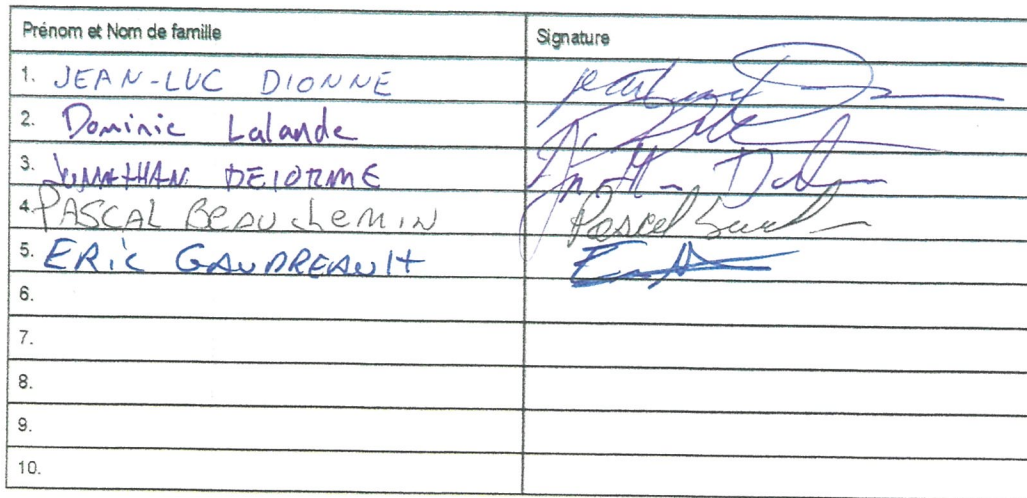 Prénom et Nom de famille Signature
1. JEAN-LUC DIONNE
2. Dominic Lalande
3. JONATHAN DELORME
4. PASCAL BEAUCHEMIN Pascal
5. ERIC GAUDREAULT
6.
7.
8.
9.
10.